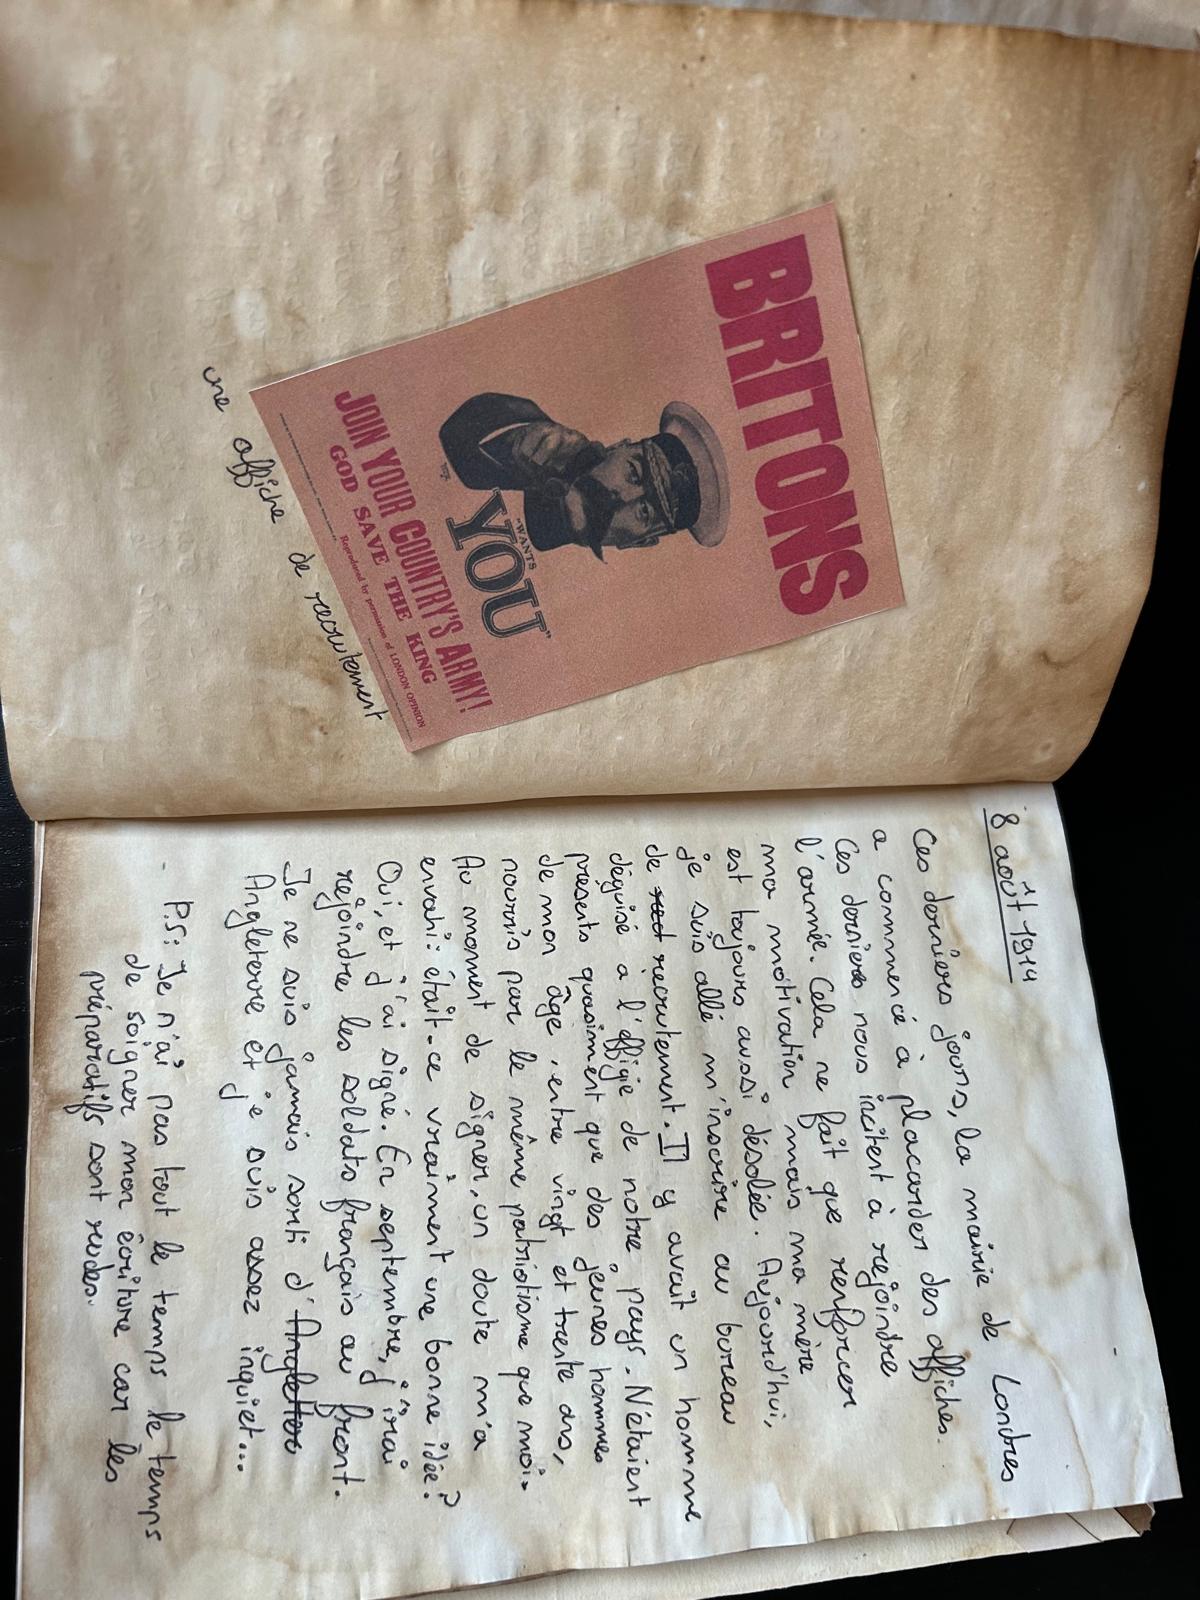 BRITONS
"WANTS
YOU"
JOIN YOUR COUNTRY'S ARMY!
GOD SAVE THE KING
Reproduced by permission of LONDON OPINION
une affiche de recrutement
8 août 1914
Ces derniers jours, la mairie de Londres
a commencé à placarder des affiches.
Ces dernières nous incitent à rejoindre
l'armée. Cela ne fait que renforcer
ma motivation mais ma mère
est toujours aussi désolée. Aujourd'hui,
je suis allé m'inscrire au bureau
de recrutement. Il y avait un homme
déguisé à l'effigie de notre pays. N'étaient
présents quasiment que des jeunes hommes
de mon âge, entre vingt et trente ans,
nourris par le même patriotisme que moi.
Au moment de signer, un doute m'a
envahi: était-ce vraiment une bonne idée?
Oui, et j'ai signé. En septembre, j'irai
rejoindre les soldats français au front.
Je ne suis jamais sorti d'Angleter
Angleterre et je suis assez inquiet...
P.S: Je n'ai pas tout le temps le temps
de soigner mon écriture car les
préparatifs sont rudes.